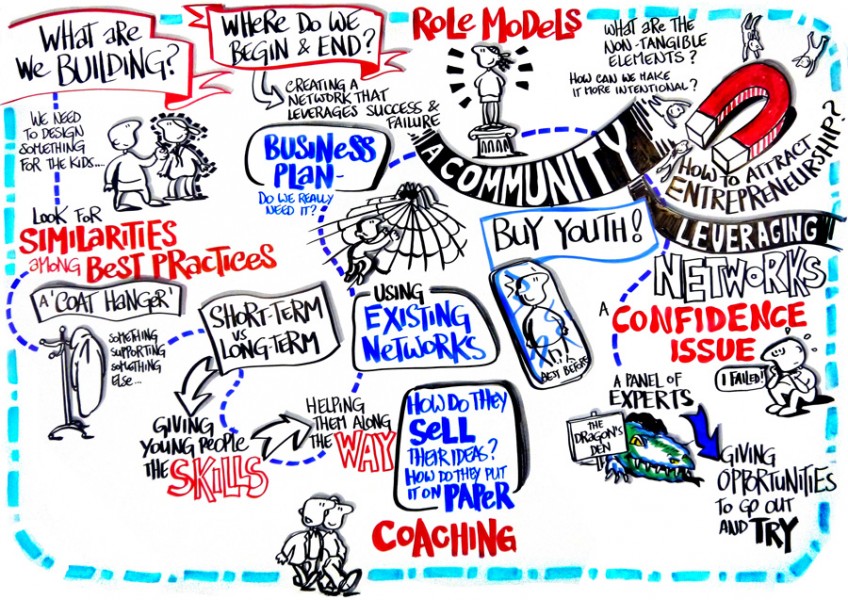 WHAT ARE
WE BUILDING?
WE NEED
TO DESIGN
SOMETHING
FOR THE KIDS....
LOOK FOR
SIMILARITIES
AMONG BEST PRACTICES
A 'COAT HANGER'
SOMETHING
SUPPORTING
SOMETHING
ELSE...
SHORT-TERM
VS
LONG-TERM
GIVING
YOUNG PEOPLE
THE SKILLS
HELPING
THEM ALONG
THE WAY
WHERE DO WE
BEGIN & END?
CREATING A
NETWORK THAT
LEVERAGES SUCCESS &
FAILURE
BUSINESS
PLAN-
DO WE REALLY
NEED IT?
USING
EXISTING
NETWORKS
HOW DO THEY
SELL
THEIR IDEAS?
HOW DO THEY PUT
IT ON PAPER
COACHING
ROLE MODELS
A COMMUNITY
WHAT ARE THE
NON-TANGIBLE
ELEMENTS?
HOW CAN WE MAKE
IT MORE INTENTIONAL?
HOW TO ATTRACT
ENTREPRENEURSHIP?
BUY YOUTH!
BEST BEFORE
LEVERAGING
NETWORKS
A CONFIDENCE
ISSUE
I FAILED!
A PANEL OF
EXPERTS
THE
DRAGON'S
DEN
GIVING
OPPORTUNITIES
TO GO OUT
AND TRY